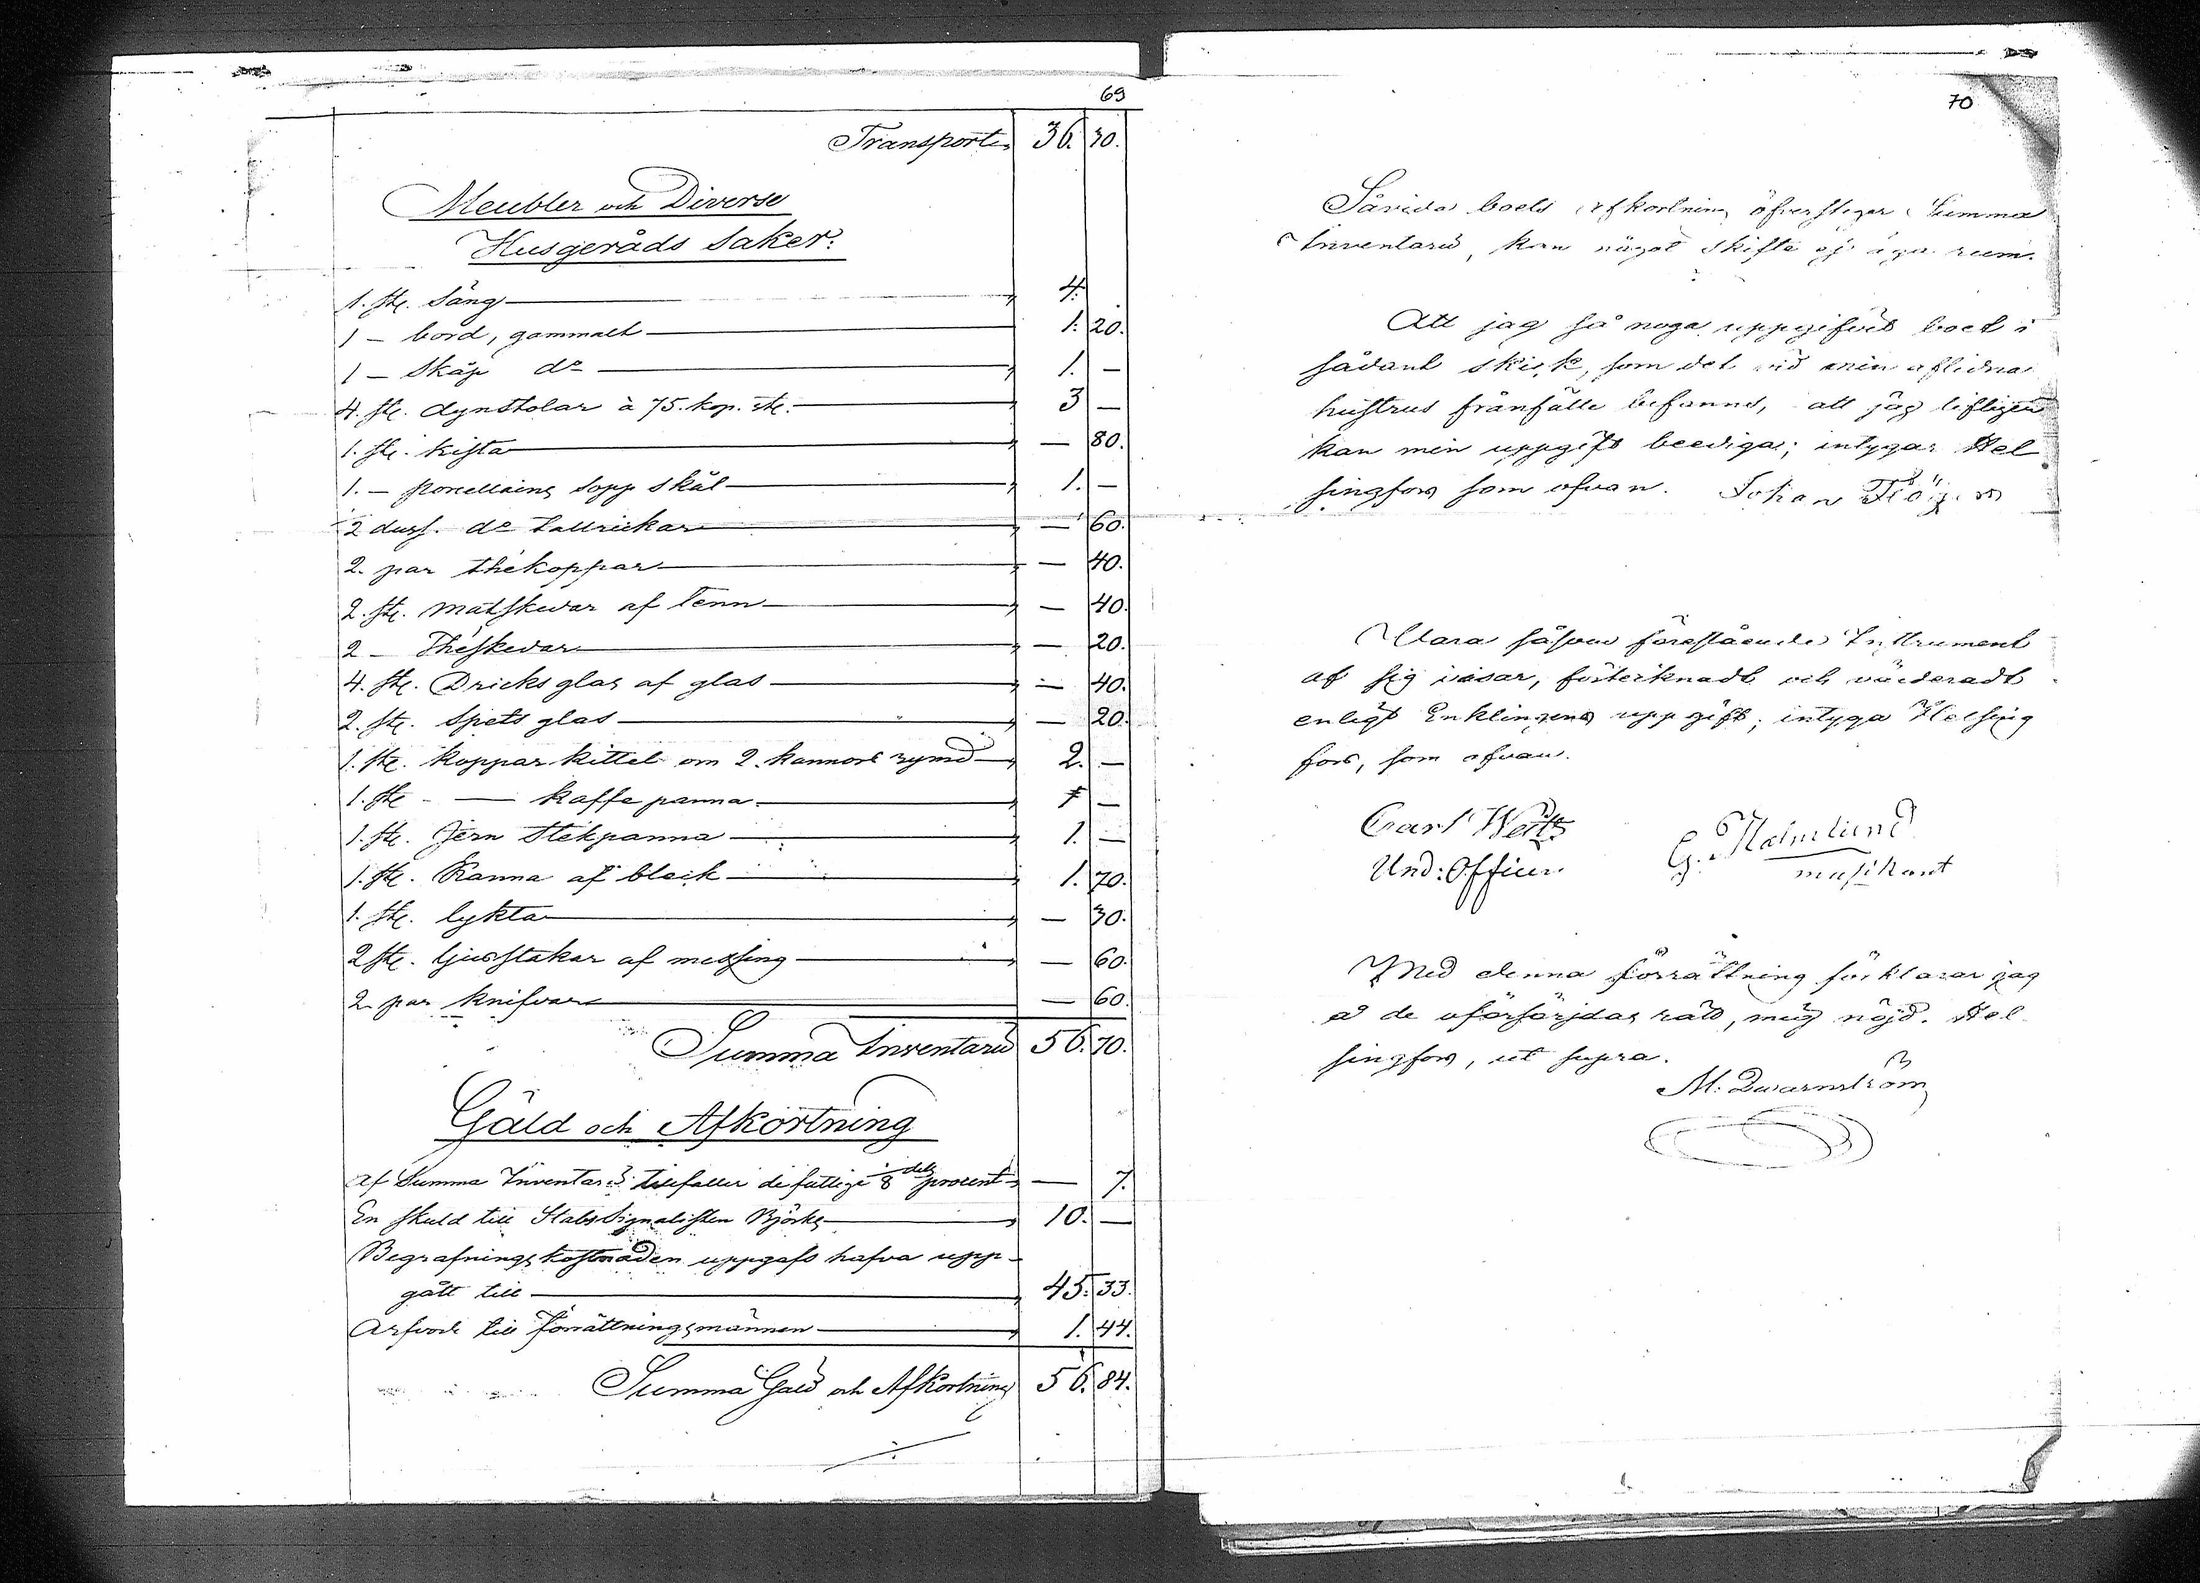 69
Transport 36. 30.
Meubler och Diverse
Husgeråds Saker.
1. st. Säng 4.
1 – bord, gammalt 1. 20.
1 – Skåp do 1. —
4. st. dynstolar à 75. kop. st. 3 —
1. st. kista — 80.
1. – porcellains sopp skål 1. —
2 duss. do Tallrickar — 60.
2. par thékoppar — 40.
2. st. matskedar af Tenn — 40.
2 – Théskedar — 20.
4. st. Dricksglas af glas — 40.
2. st. Spets glas — 20.
1. st. Kopparkittel om 2. kannors rymd 2. —
1. st. — kaffe panna 1 —
1. st. Jern Stekpanna 1. —
1. st. Kanna af bleck 1. 70.
1. st. lykta — 30.
2 st. ljusstakar af messing — 60.
2 par knifvar — 60.
Summa Inventarii 56. 70.
Gäld och Afkortning
Af Summa Inventarii tillfaller de fattige 8 dels procent — 7.
En skuld till StabsSignalisten Björk 10. —
Begrafningskostnaden uppgafs hafva upp-
gått till 45. 33.
Arfvode till Förrättningsmännen 1. 44.
Summa Gäld och Afkortning 56. 84.
70
Såvida boets afkortning öfverstiger Summa
Inventarii, kan något skifte ej äga rum.
Att jag så noga uppgifvit boet i
sådant skick, som det vid min aflidna
hustrus frånfälle befanns, att jag
kan min uppgift beediga; intygar Hel
singfors som ofvan. Johan
Vara såsom förestående Instrument
af sig visar, förtecknadt och värderadt
enligt Enklingens uppgift; intyga Helsing
fors, som ofvan.
Carl Weitz
Und: Officer
G. Malmlund
musikant
Med denna förrättning förklarar jag
å de oförsörjdas råd, mig nöjd. Hel
singfors, ut supra.
M. Qwarnström